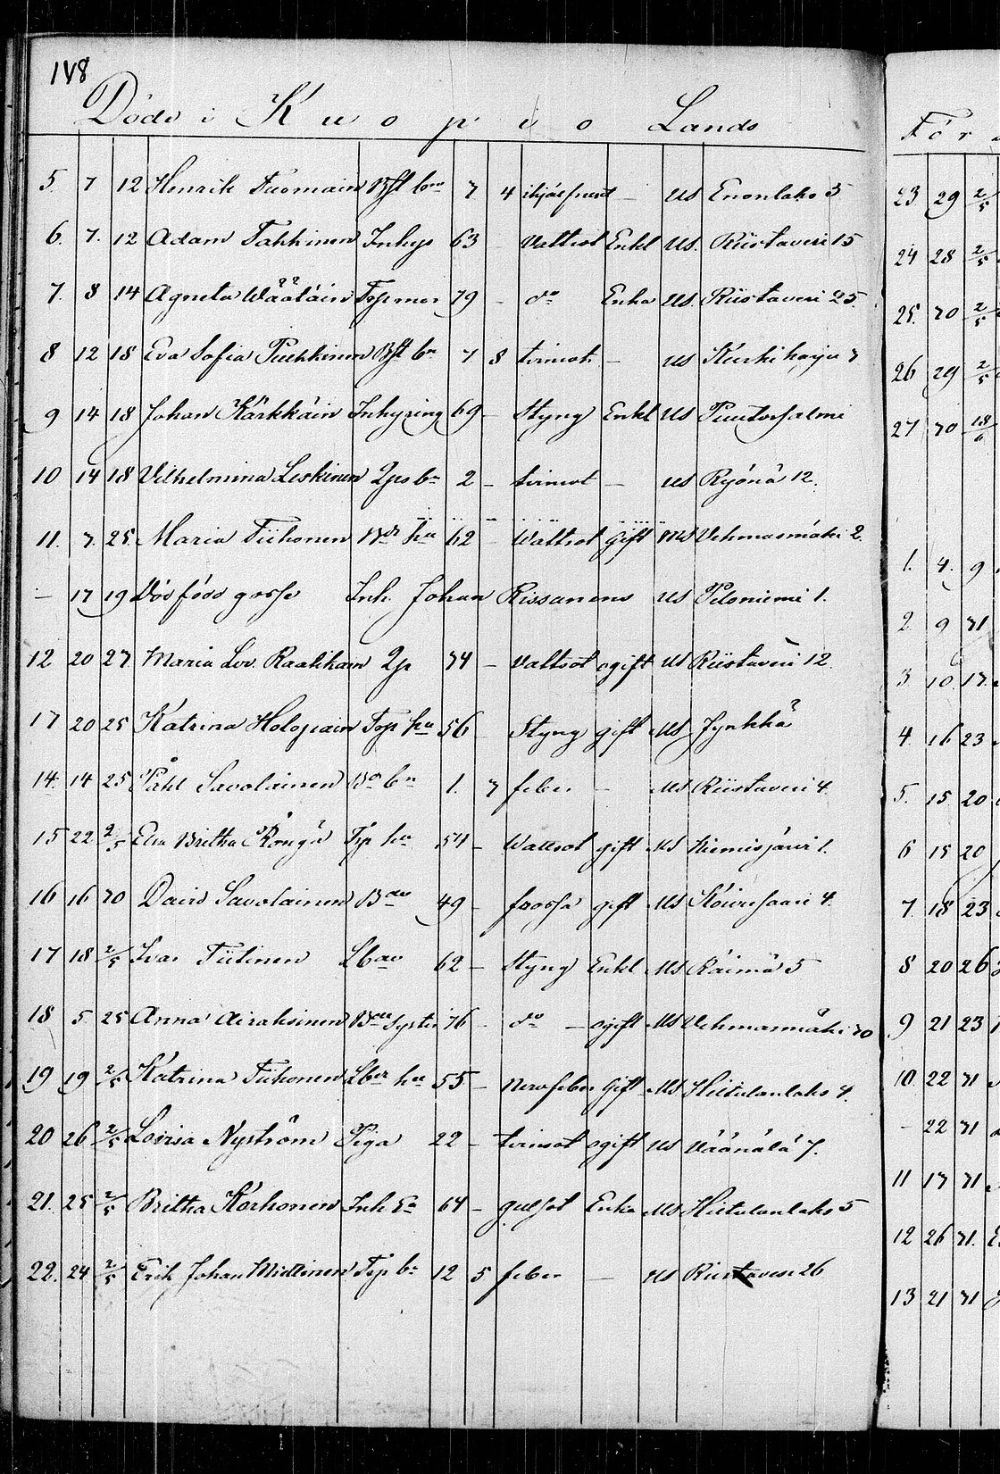 148
Döde i Kuopio Lands
5. 7 12 Henrik Tuomain Bst bn 7. 4 ihjälfrusit — us Enonlaks 5
6. 7. 12 Adam Takkinen Inhys 63 — Vattsot Enkl us. Riistavesi 15
7. 8 14 Agneta Wäätäin Torpmor 79 — do Enka us. Riistavesi 25
8 12 18 Eva Sofia Puhkinen Bst bn 7 8 tvinsot — us Kurki harju 7
9 14 18 Johan Kärkkäin Inhysing 69 — Styng Enkl us Puutossalmi
10 14 18 Vilhelmina Leskinen Lps bn 2 — tvinsot — us Ryönä 12.
11. 7. 25. Maria Tiihonen Bdr hu 62 — Wattsot gift us Vehmasmäki 2.
— 17 19 Dödfödd gosse Inh. Johan Rissanens us Peloniemi 1.
12 20 27 Maria Lov. Raatikain Lp 74 — vattsot ogift us Riistavesi 12
17 20 25 Katrina Holopain Torp hu 56 Styng gift us Jynkkä
14. 14 25 Påhl Savolainen Bo bn 1. 7 feber — us Riistavesi 4.
15 22 2/5 Eva Britha Röngä Trp hu 54 — Wattsot gift us Kiemisjärvi 1.
16 16 70 David Savolainen Bde 49 — frossa gift us Koivusaari 4.
17 18 2/5 Ivar Tiilinen Lbde 62 — Styng Enkl us Räimä 5
18 5 25 Anna Airaksinen Bdes syster 76 — do — ogift us Vehmasmäki 70
19 19 2/5 Katrina Tiihonen Lbdr hu 55 — nervfeber gift us Hiltulanlaks 4.
20 26 2/5 Lovisa Nyström Piga 22 — tvinsot ogift us Väänälä 7.
21. 25 2/5 Britha Korhonen Inh Ea 64 — gulsot Enka us Hiltulanlaks 5
22. 24 2/5 Erik Johan Miettinen Torp bn 12 5 feber — us Riistavesi 26
För
23 29 2/5
24 28 2/5
25. 70 2/5
26 29 2/5
27 70 18/6
1. 4. 9
2 9 71
3 10 17.
4. 16 23
5. 15 20
6 15 20
7. 18 23
8 20 26
9 21 23
10. 22 71
- 22 71
11 17 71
12 26 71.
13 21 71